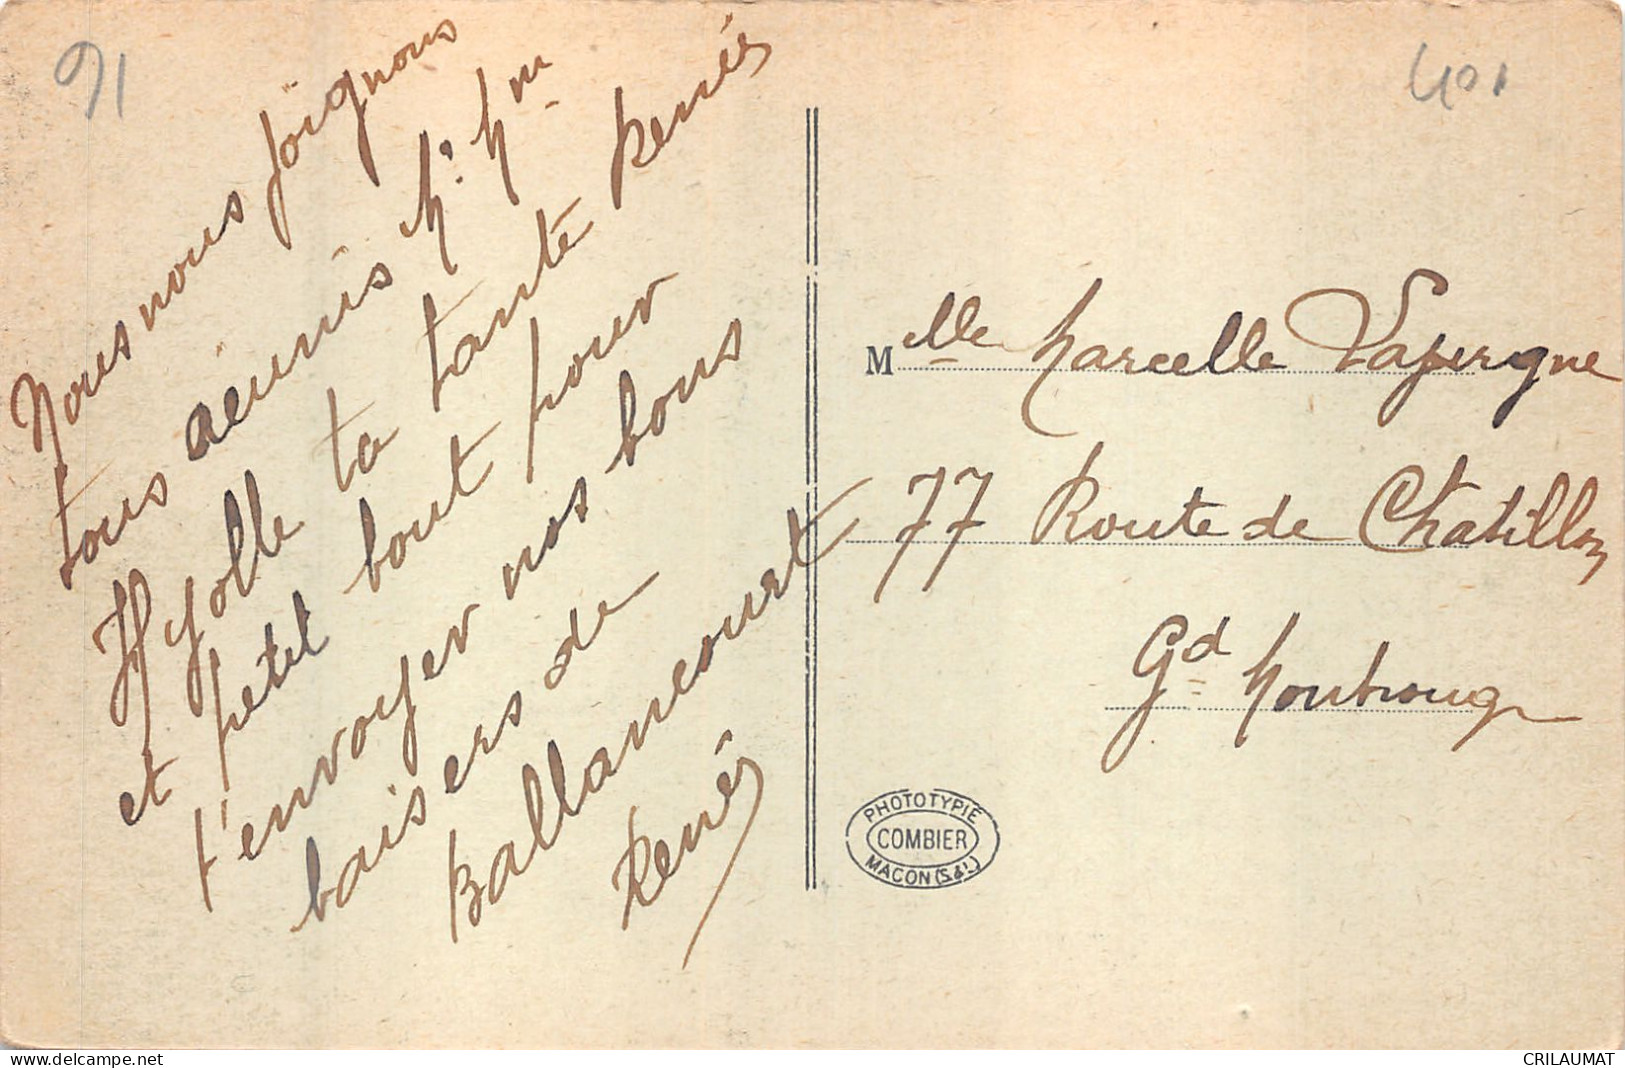 91
401
Nous nous joignons
tous réunis Mr. Mm
Hyolle ta tante Renée
et petit bout pour
t'envoyer nos bons
baisers de
Ballancourt
Renée
Melle Marcelle
77 Route de Chatillon
Gd Montrouge
PHOTOTYPIE
COMBIER
MACON (S.&L.)
CRILAUMAT
delcampe.net